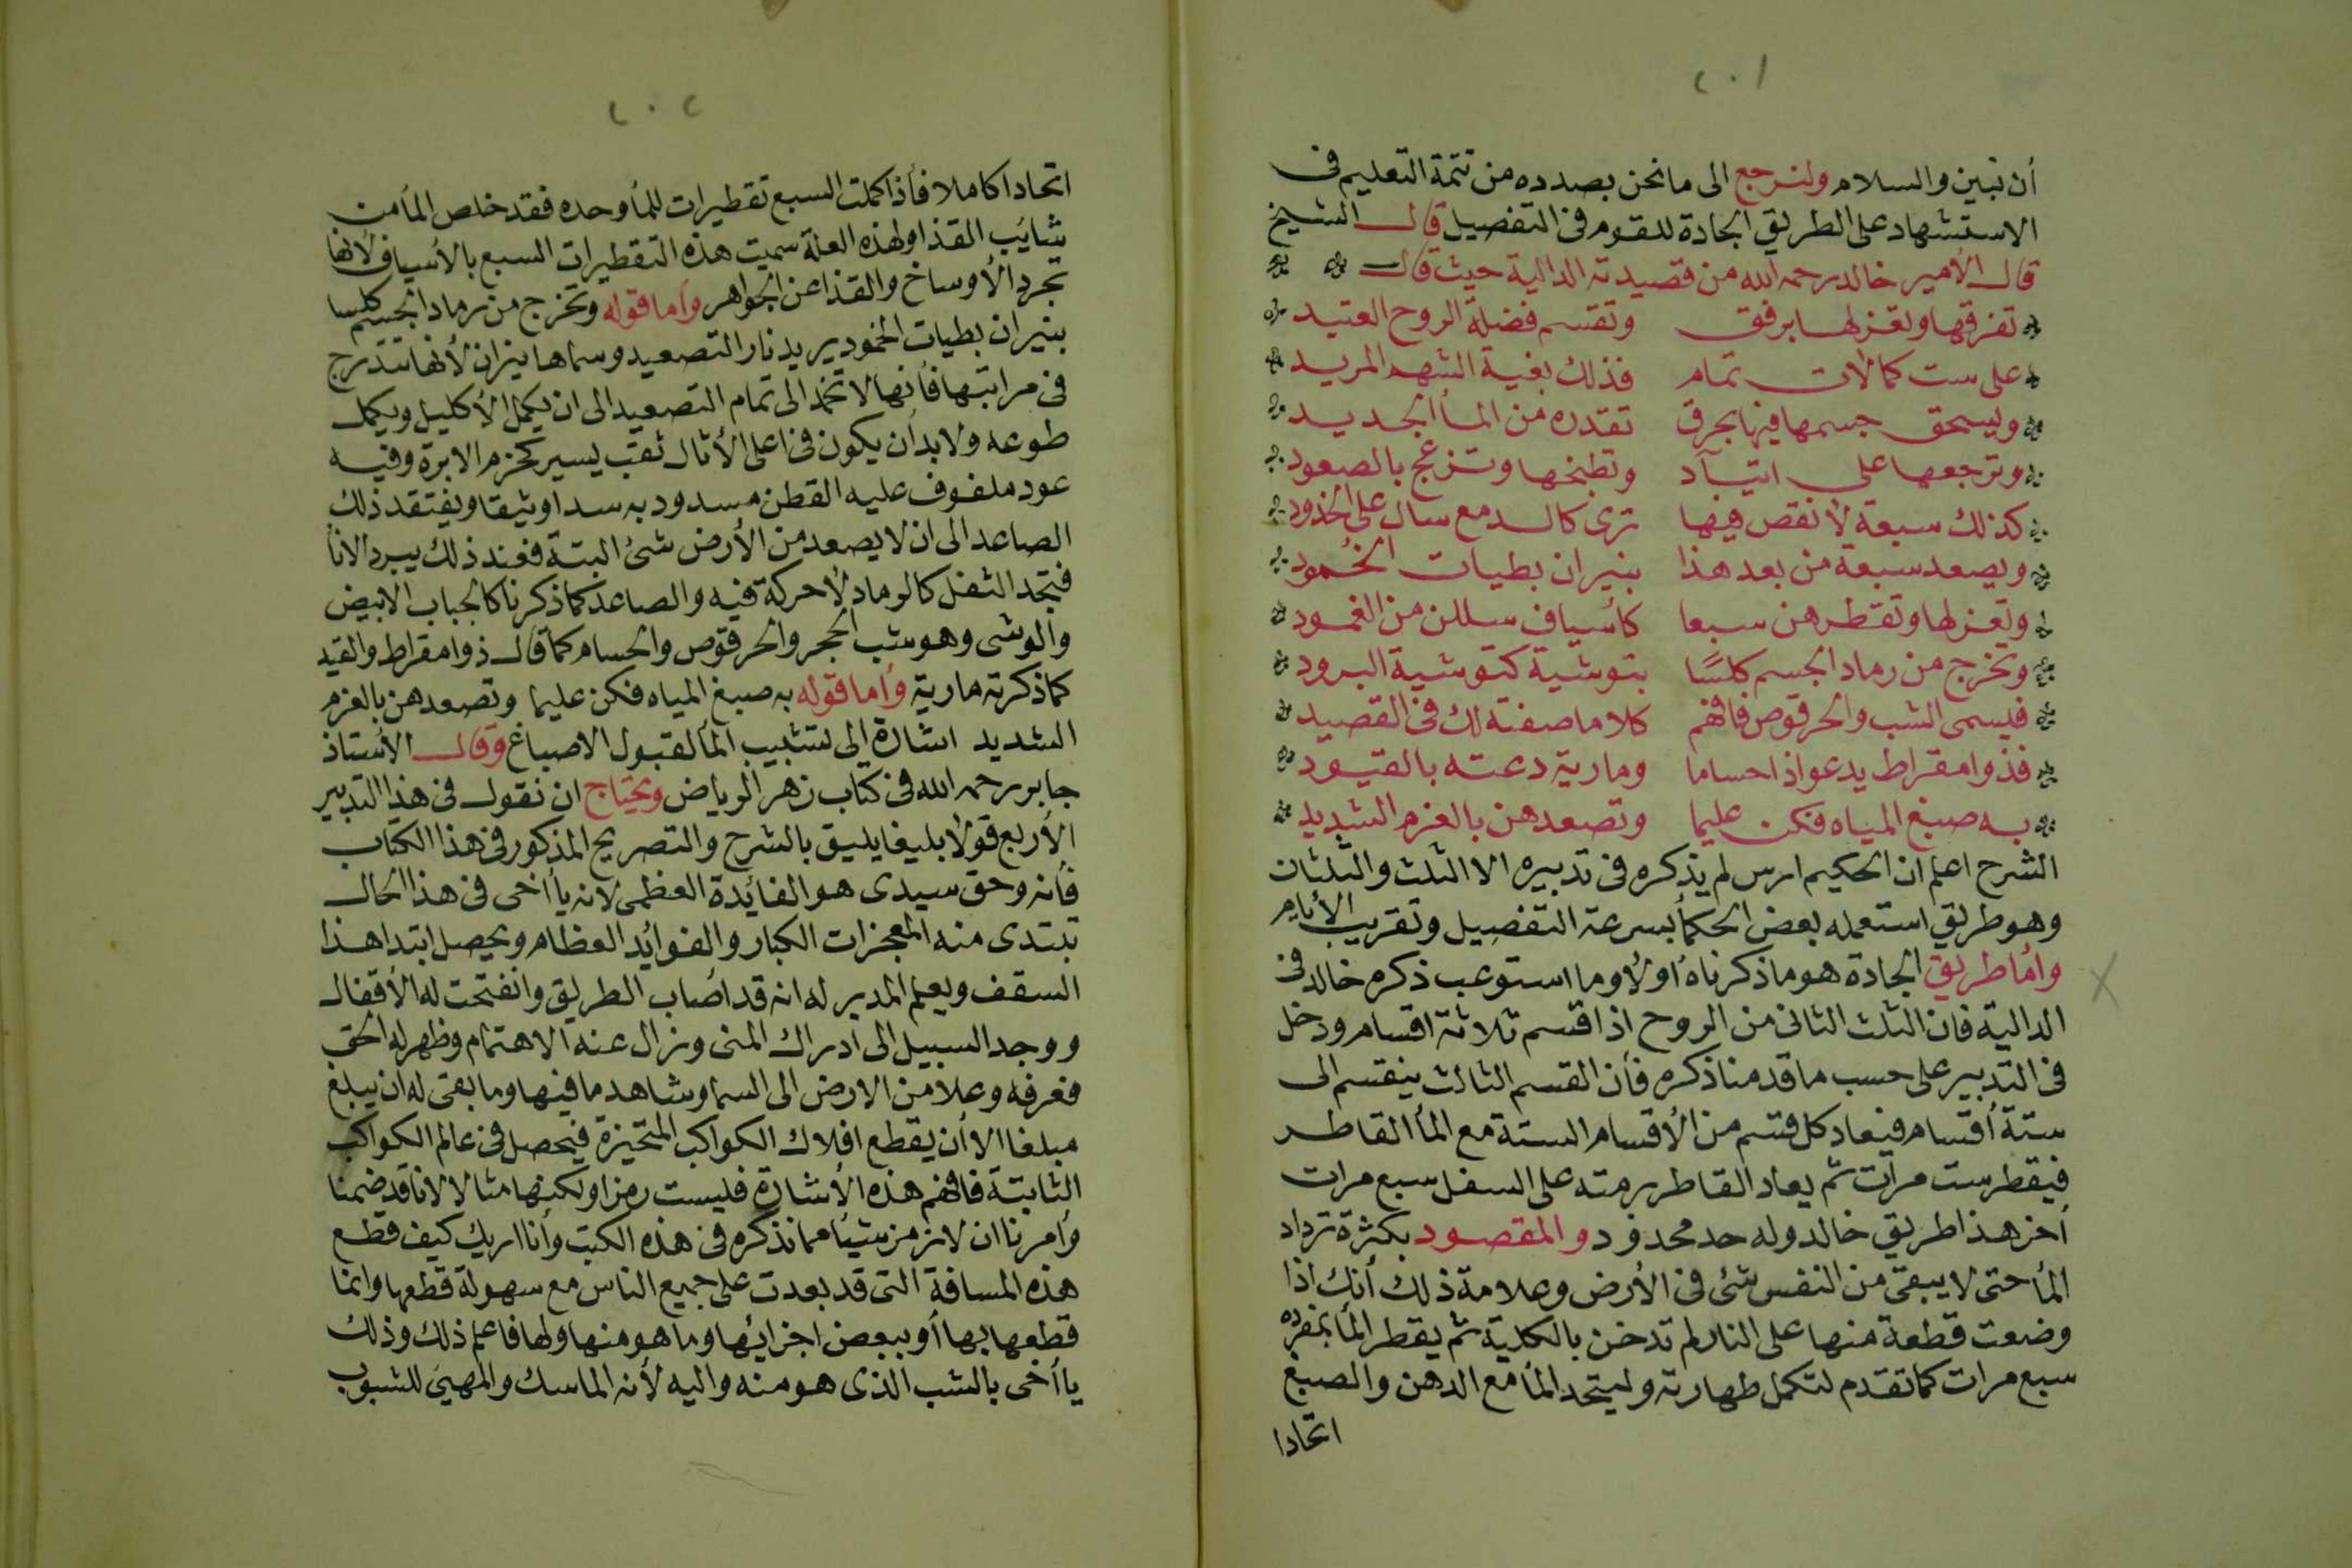 ٢٠١
أن نبين والسلام ولنرجع الى ما نحن بصدده من تتمة التعليم فى
الاستشهاد على الطريق الجادة للقوم فى التفصيل قال الشيخ
قال الأمير خالد رحمه الله من قصيدته الدالية حيث قال
تفرقها وتغزلها برفق وتقسم فضلة الروح العتيد
على ست كمالات تمام فذلك بغية الشهم المريد
وليسحق جسمها فيها بحرق تقدره من المأ الجديد
وترجعها على اتيآد وتطبخها وتزعج بالصعود
كذلك سبعة لا نقص فيها ترى كالدمع سال على الخدود
ويصعد سبعة من بعد هذا بنيران بطيات الخُمود
وتغزلها وتقطرهن سبعا كأسياف سللن من الغمود
وتخرج من رماد الجسم كلسًا بتوشية كتوشية البرود
فيسمى الشب والحرقوص فافهم كلاما صفته لك فى القصيد
فذوامقراط يدعو اذا حساما ومارية دعته بالقيود
به صبغ المياه فكن عليما وتصعدهن بالغرم الشديد
الشرح اعلم ان الحكيم ارس لم يذكره فى تدبيره الا الثلث والثلثان
وهو طريق استعمله بعض الحكمأ بسرعة التفصيل وتقريب الأيام
وأما طريق الجادة هو ما ذكرناه أولأ وما استوعب ذكره خالد فى
الدالية فان الثلث الثانى من الروح اذا قسم ثلاثة اقسام ودخل
فى التدبير على حسب ما قدمنا ذكره فأن القسم الثالث ينقسم الى
ستة أقسام فيعاد كل قسم من الأقسام الستة مع المأ القاطر
فيقطر ست مرات ثم يعاد القاطر برمته على السفل سبع مرات
أخر هذا طريق خالد وله حد محدود والمقصود بكثرة ترداد
المأ حتى لا يبقى من النفس شئ فى الأرض وعلامة ذلك أنك اذا
وضعت قطعة منها على النار لم تدخن بالكلية ثم يقطر المأ بمفرده
سبع مرات كما تقدم لتكمل طهارته وليتحد المأ مع الدهن والصبغ
اتحادا
٢٠٢
اتحادا كاملا فأذا كملت السبع تقطيرات للمأ وحده فقد خلص المأ من
شائب القذا ولهذه العلة سميت هذه التقطيرات السبع بالأسياف لأنها
تجرد الأوساخ والقذا عن الجواهر وأما قوله وتخرج من رماد الجسم كلسا
بنيران بطيات الخمود يريد نار التصعيد وسماها نيران لأنها تتدرج
فى مراتبها فأنها لا تخمد الى تمام التصعيد الى ان يكمل الأكليل ويكمل
طوعه ولا بد أن يكون فى اعلى الأثال ثقب ليسير كخزم الابرة وفيه
عود ملفوف عليه القطن مسدود به سدا وثيقا ويفتقد ذلك
الصاعد الى ان لا يصعد من الأرض شئ البتة فعند ذلك يبرد الانأ
فتجد الثفل كالرماد لأ حركة فيه والصاعد كما ذكرنا كالجباب الابيض
والوشى وهو شب الحجر والحرقوص والحسام كما قال ذوامقراط والقيد
كما ذكرته مارية وأما قوله به صبغ المياه فكن عليما وتصعدهن بالغرم
الشديد اشارة الى تشبيب المأ لقبول الاصباغ وقال الأستاذ
جابر رحمه الله فى كتاب زهر الرياض ونحتاج ان نقول فى هذا التدبير
الأربع قولأ بليغا يليق بالشرح والتصريح المذكور فى هذا الكتاب
فأنه وحق سيدى هو الفائدة العظمى لانه يا أخى فى هذا الحال
تبتدى منه المعجزات الكبار والفوائد العظام ويحصل ابتدا هذا
السقف ويعلم المدبر له انه قد اصاب الطريق وانفتحت له الأقفال
ووجد السبيل الى ادراك المنى وزال عنه الاهتمام وظهر له الحق
فعرفه وعلا من الارض الى السما وشاهد ما فيها وما بقى له ان يبلغ
مبلغا الا أن يقطع افلاك الكواكب المتحيزة فيحصل فى عالم الكواكب
الثابتة فافهم هذه الأشارة فليست رمزا ولكنها مثالا لانا قد ضمنا
وأمرنا ان لا نرمز شيأ مما نذكره فى هذه الكتب وأنا اريك كيف قطع
هذه المسافة التى قد بعدت على جميع الناس مع سهولة قطعها وانما
قطعها بها أو ببعض اجزائها وما هو منها ولها فاعلم ذلك وذلك
يا أخى بالشب الذى هو منه واليه لأنه الماسك والمهيئ للشبوب